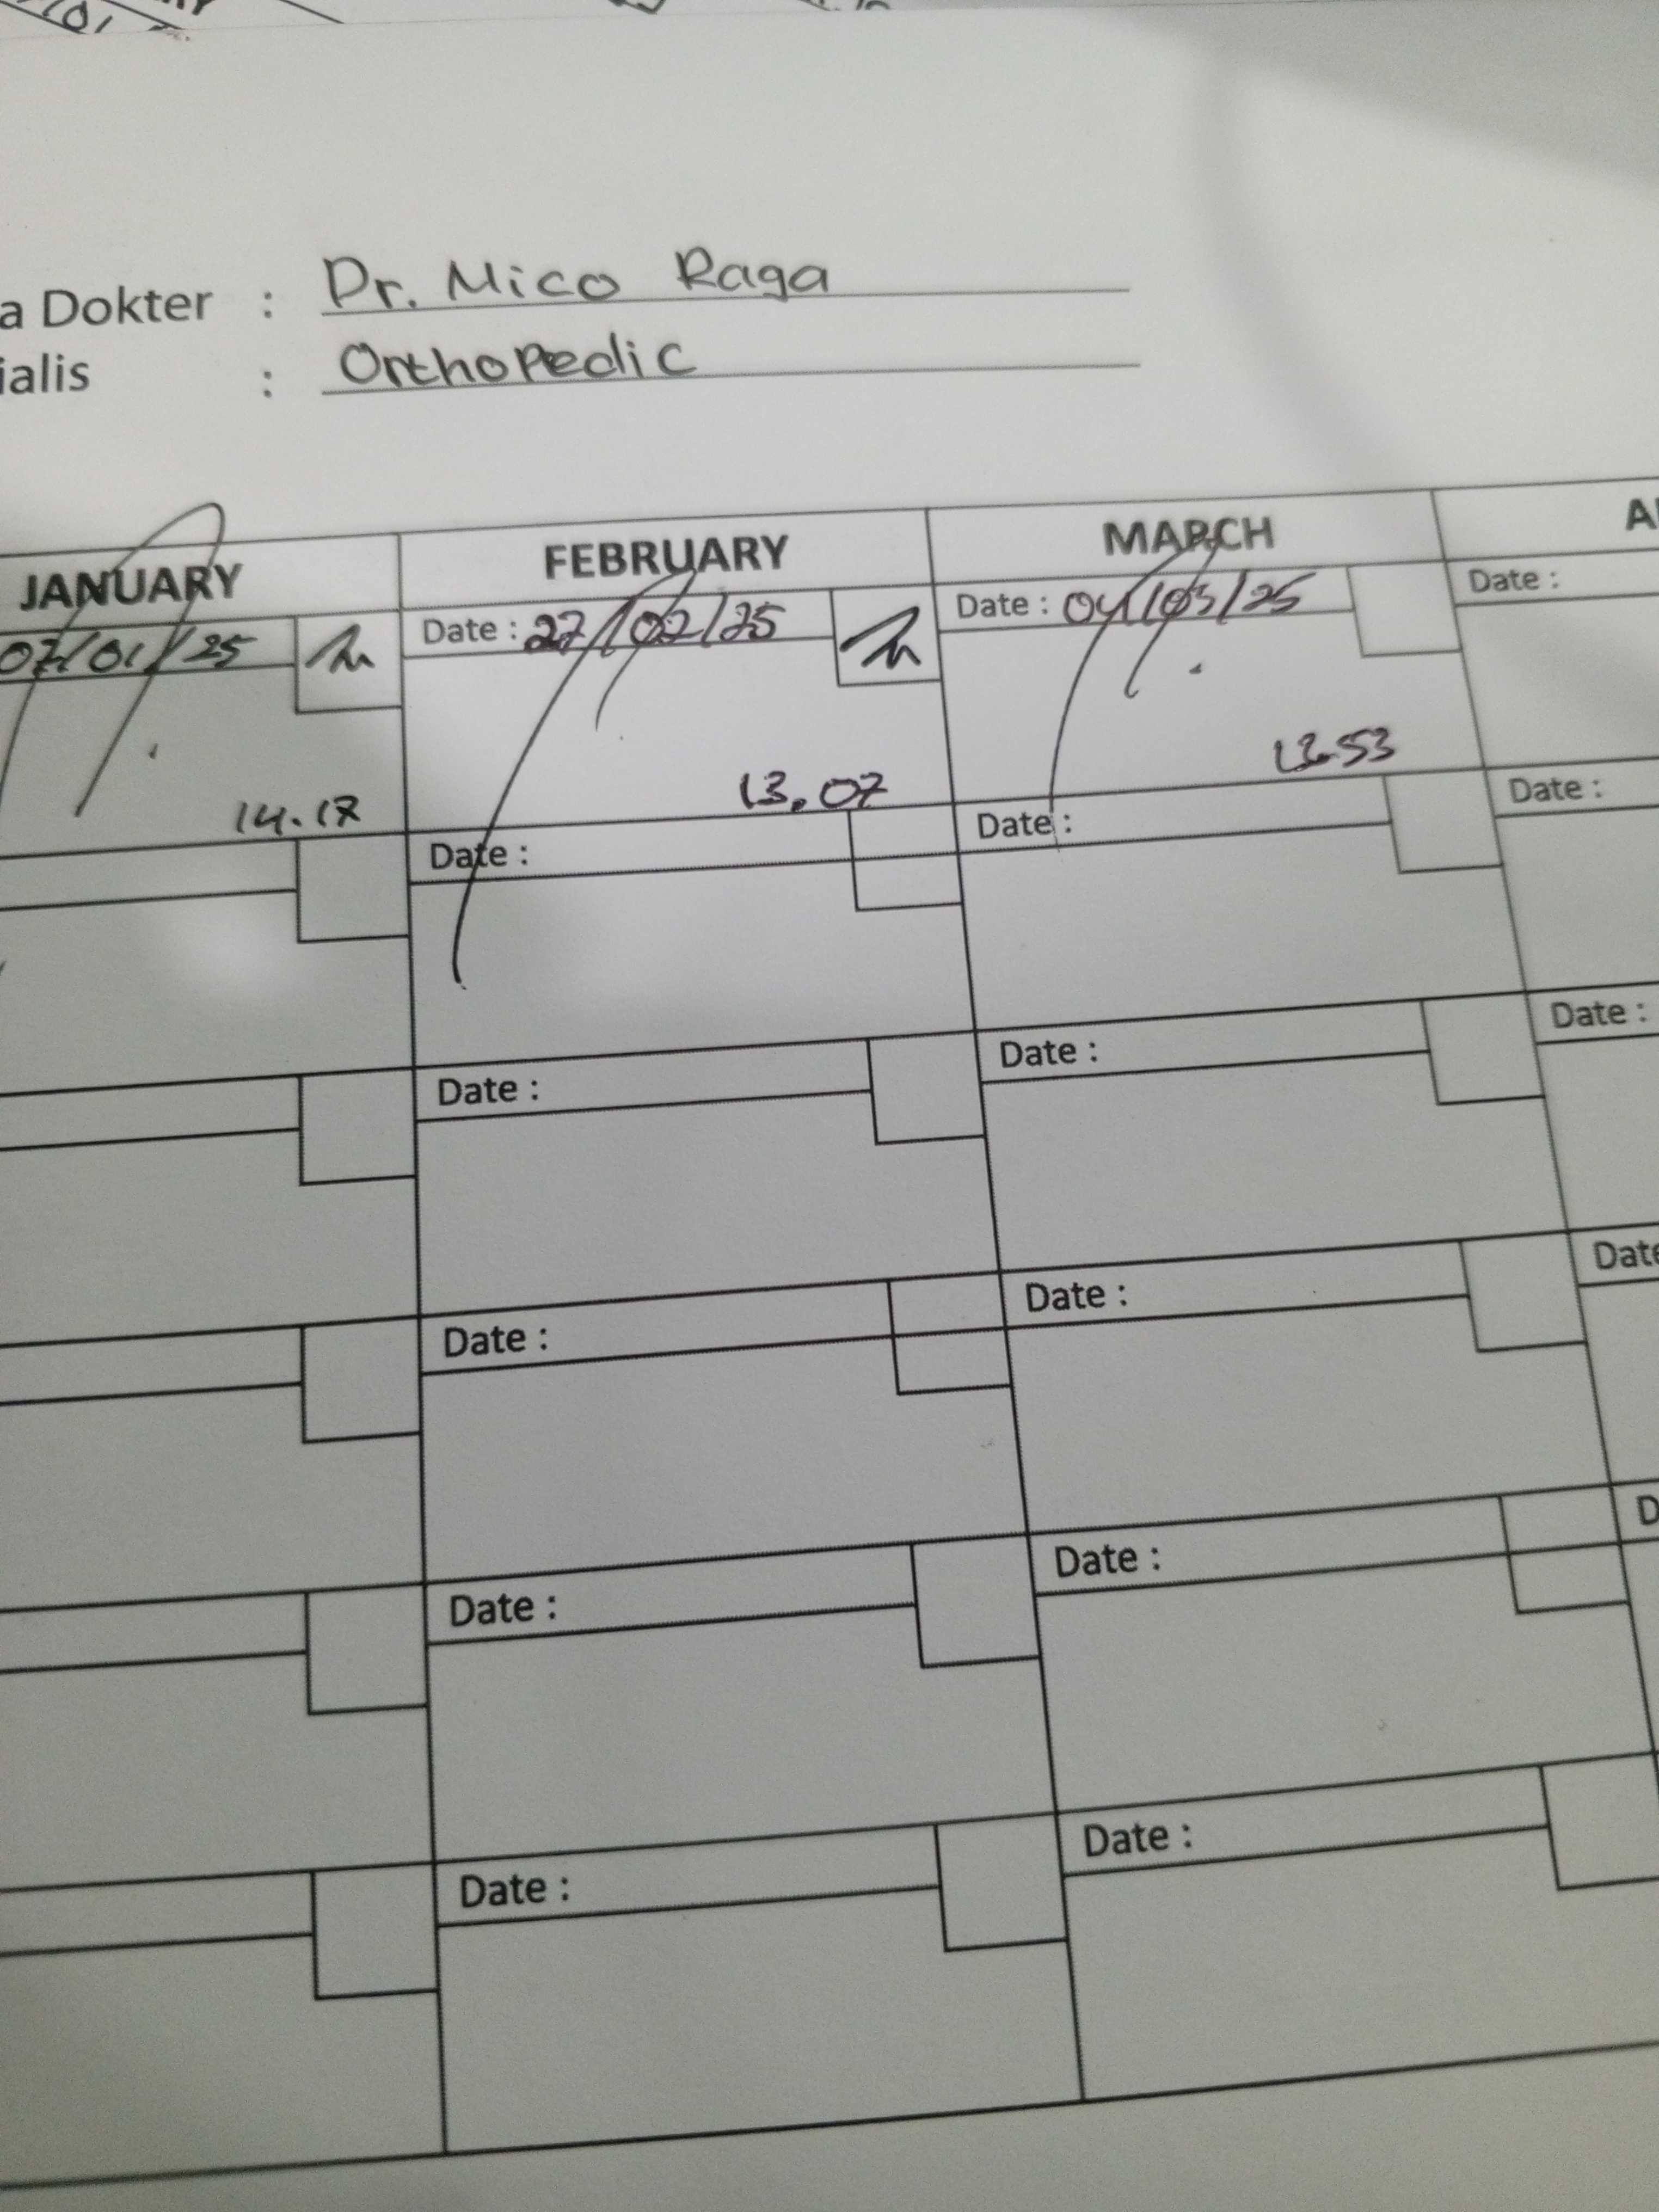 a Dokter : Dr. Mico Raga
ialis : Orthopedic
JANUARY FEBRUARY MARCH
07/01/25 Date : 27/02/25 Date : 04/03/25 Date :
14.17 13.07 53
Date : Date : Date :
Date : Date : Date :
Date : Date : Date
Date : Date :
Date : Date :